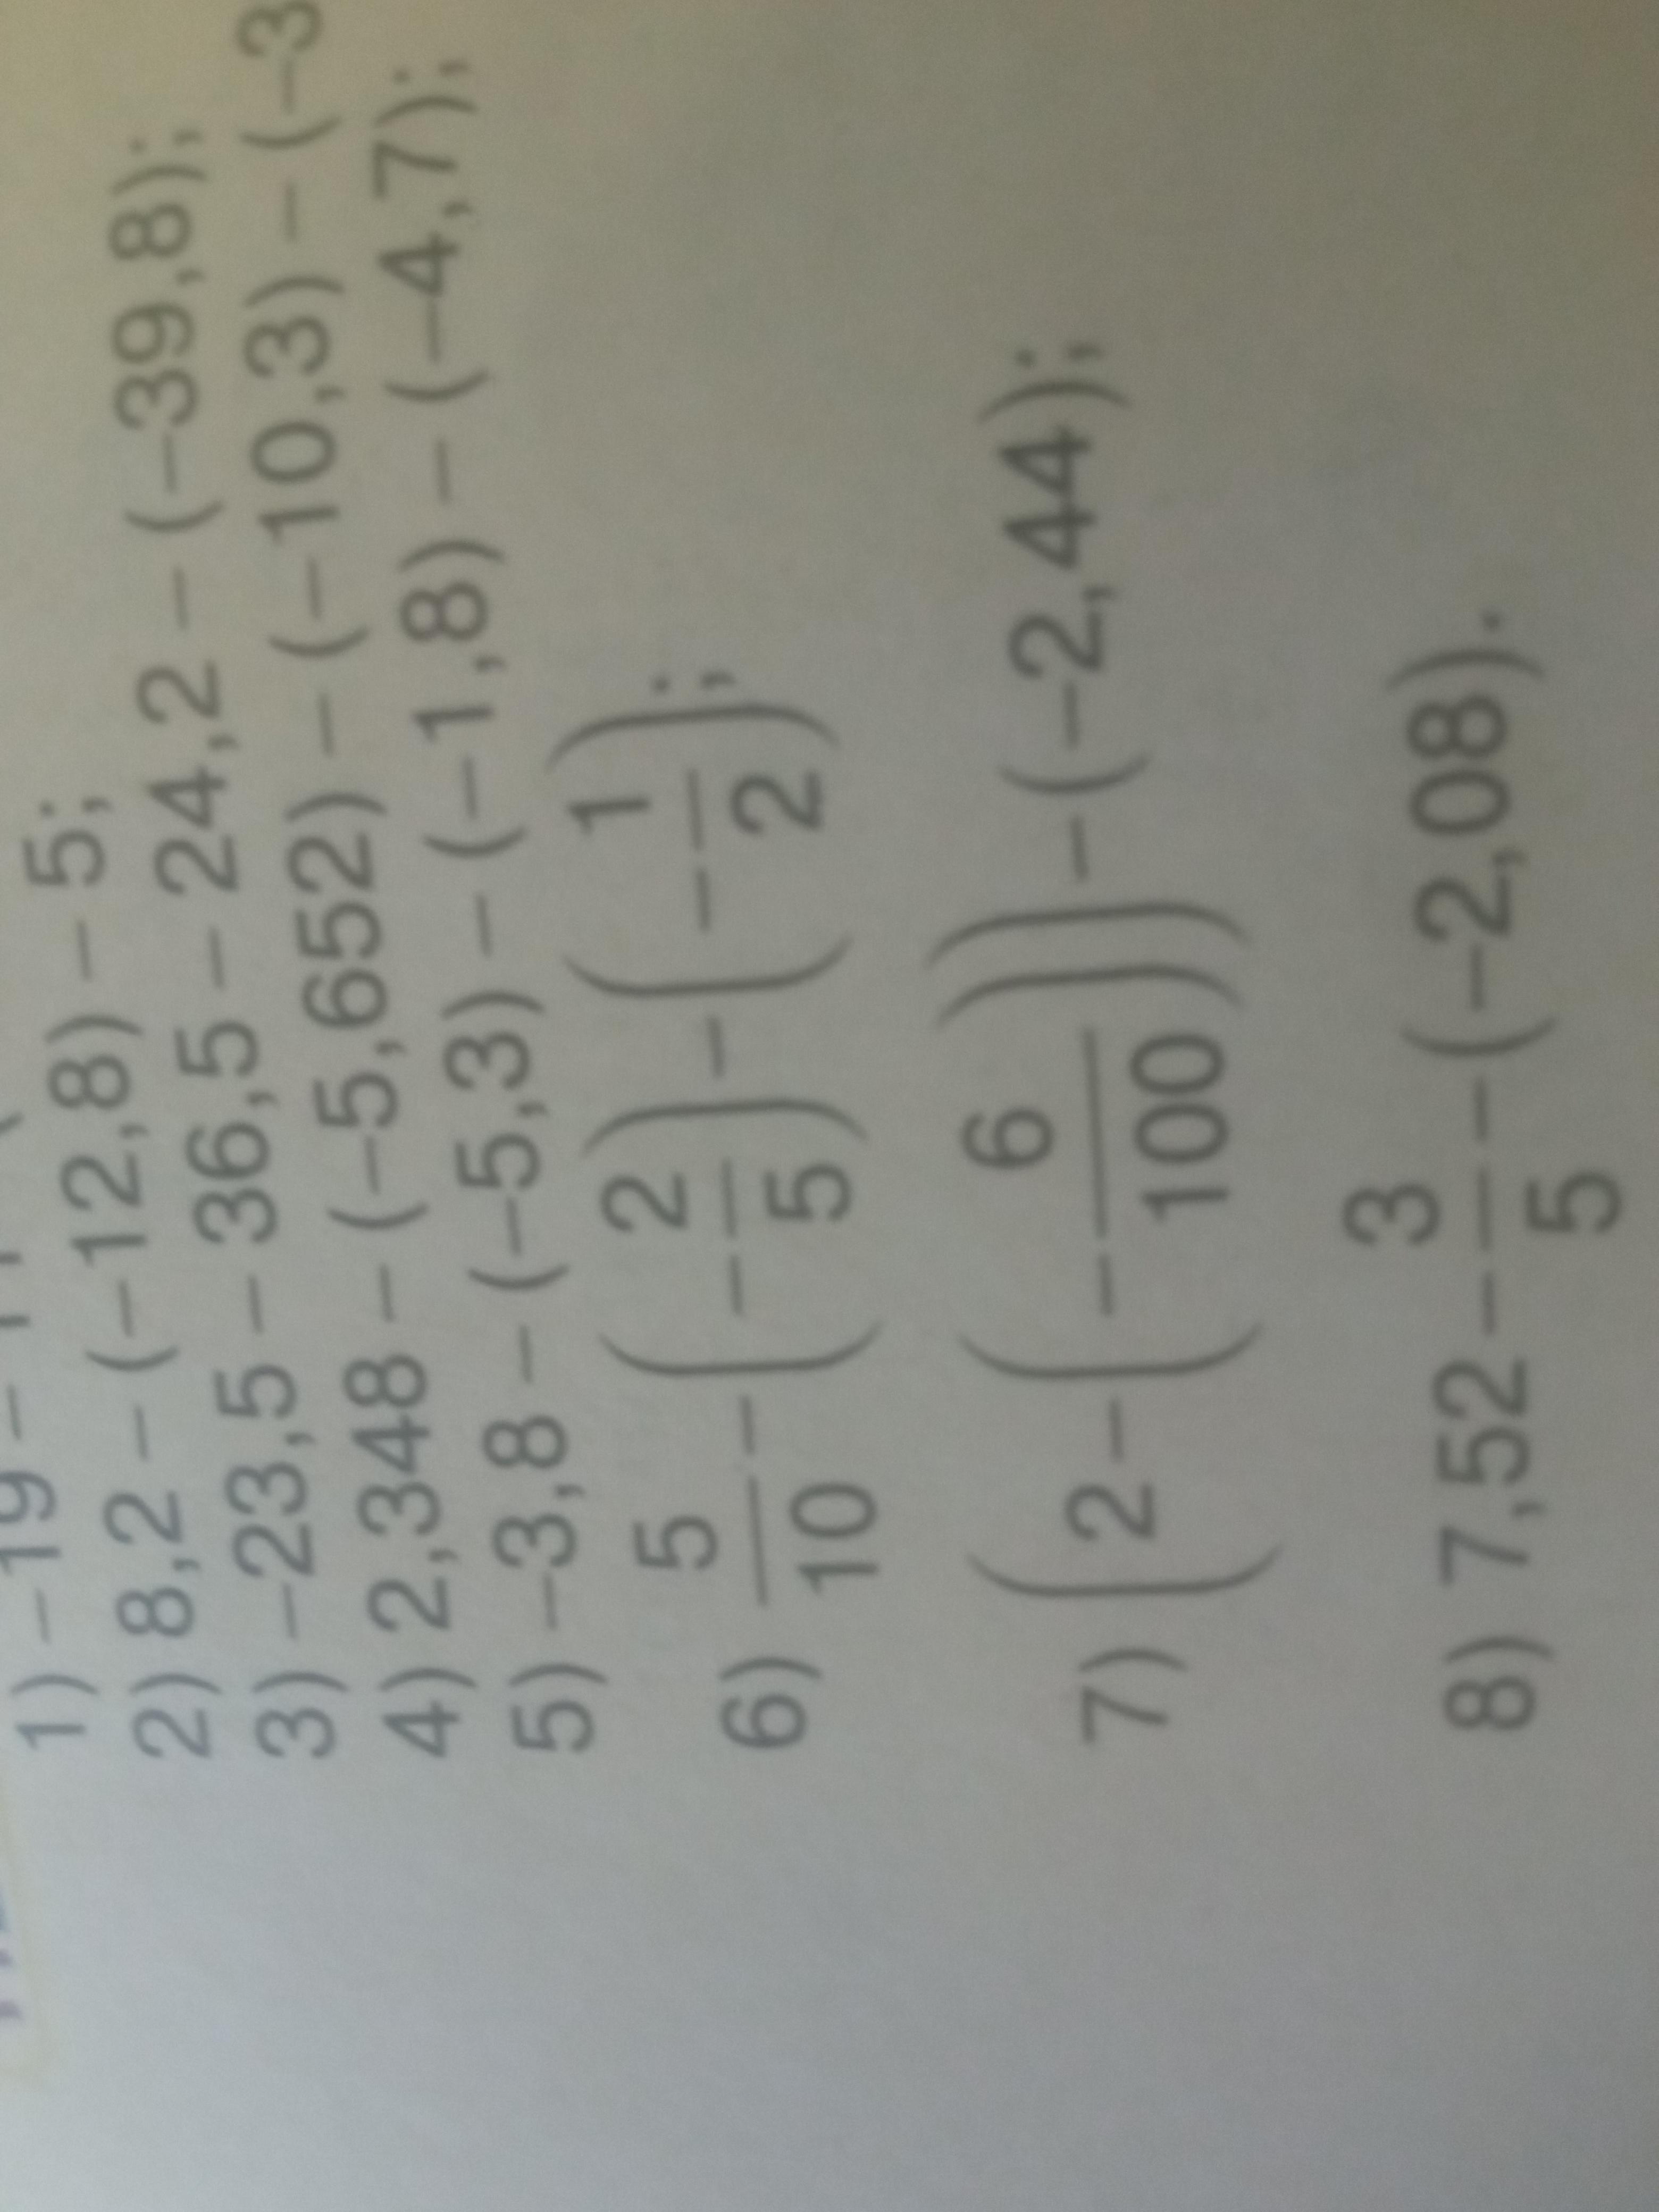 1) –19 –
2) 8,2 – (–12,8) – 5;
3) –23,5 – 36,5 – 24,2 – (–39,8);
4) 2,348 – (–5,652) – (–10,3) – (–3
5) –3,8 – (–5,3) – (–1,8) – (–4,7);
6) 5/10 – (–2/5) – (–1/2);
7) (2 – (–6/100)) – (–2,44);
8) 7,52 – 3/5 – (–2,08).